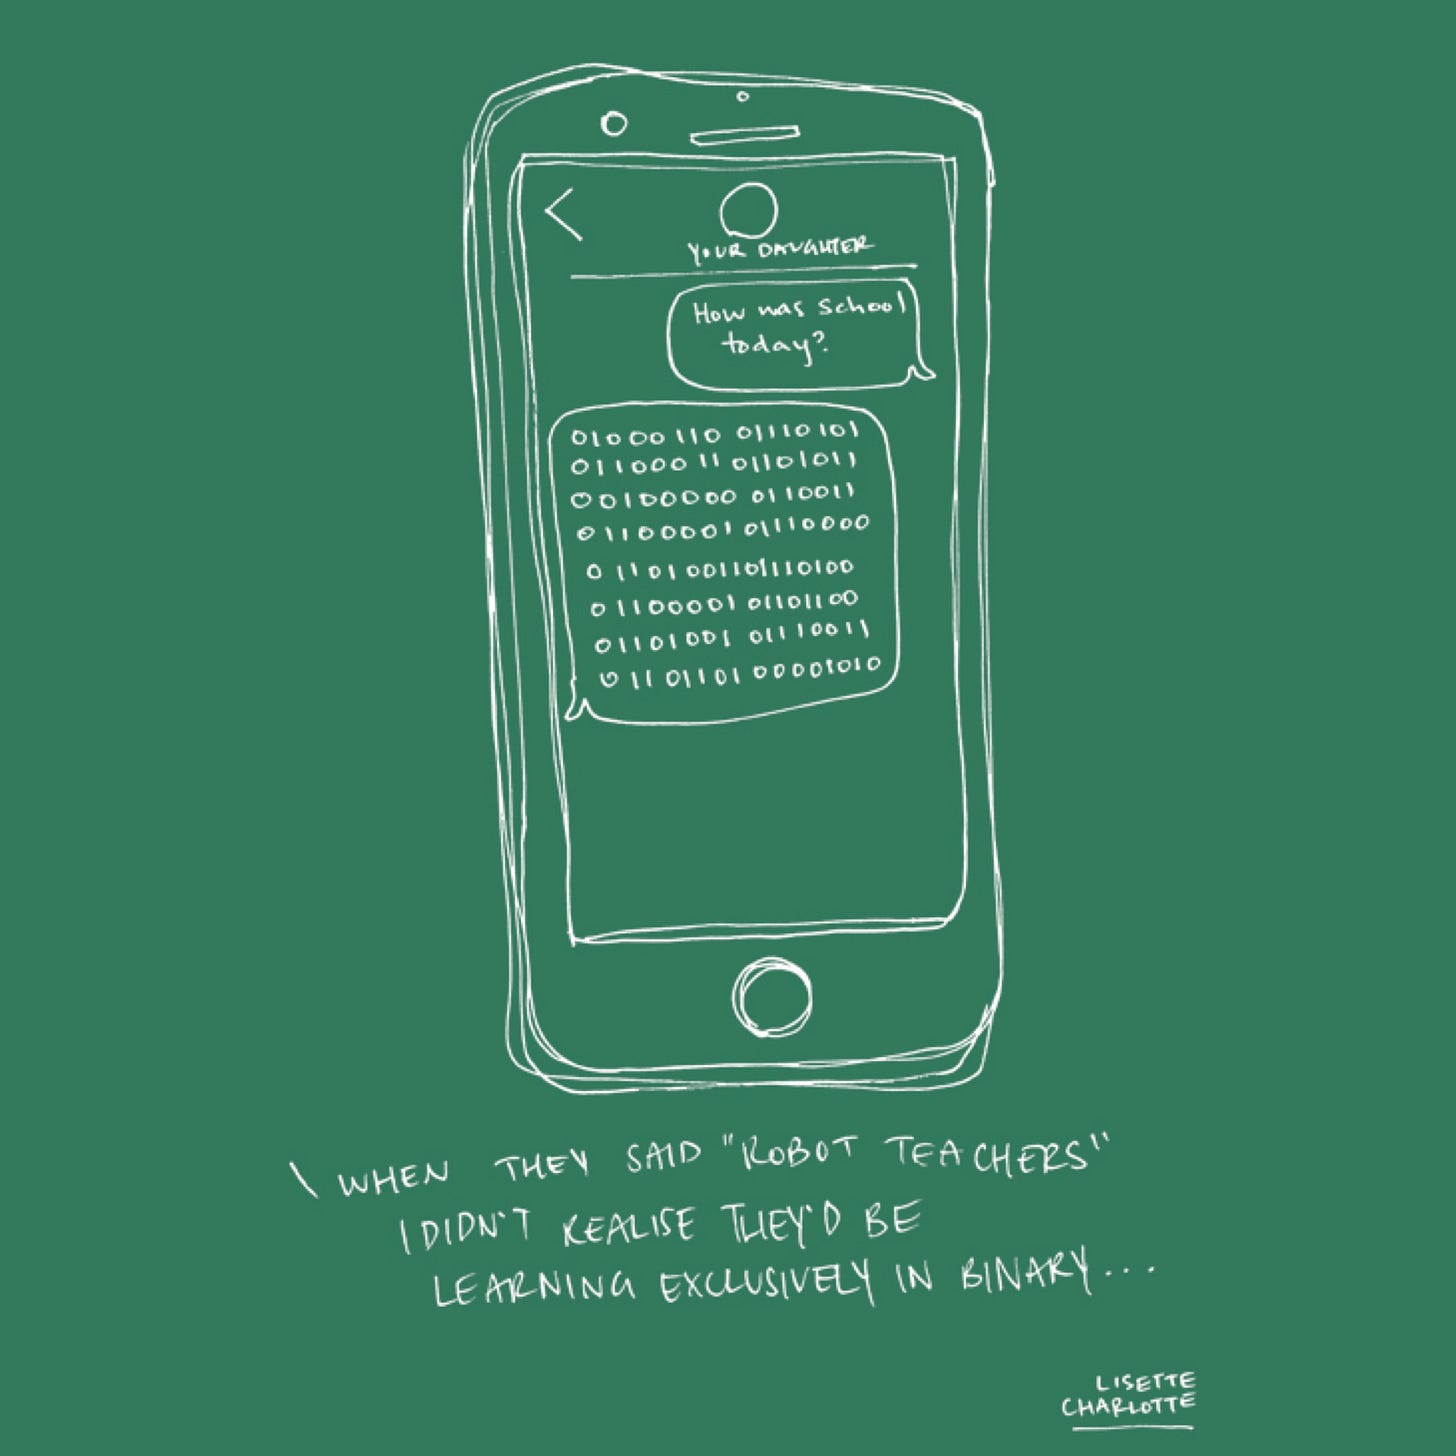 YOUR DAUGHTER
How was school
today?
01000110 01110101
01100011 01101011
00100000 0110011
01100001 01110000
01101001101110100
01100001 01101100
01101001 01110011
01101101 00001010
\ WHEN THEY SAID "ROBOT TEACHERS"
I DIDN'T REALISE THEY'D BE
LEARNING EXCLUSIVELY IN BINARY...
LISETTE
CHARLOTTE